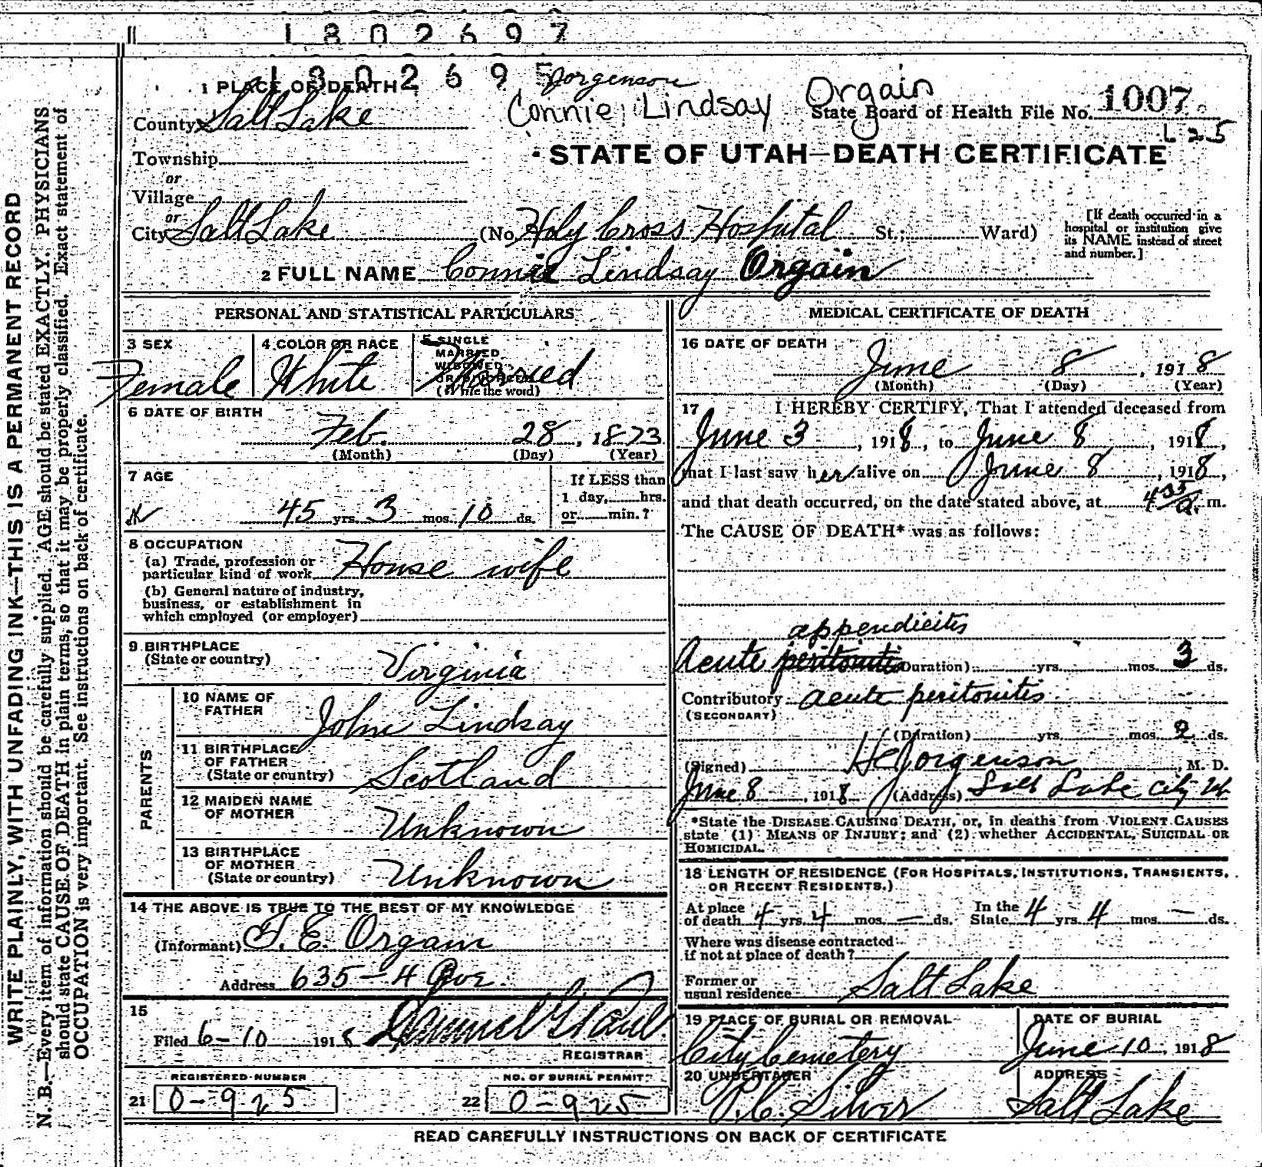 1802697
180269
Jorgenson
Connie Lindsay Orgain
1 PLACE OF DEATH
County Salt Lake
State Board of Health File No. 1007
L25
STATE OF UTAH—DEATH CERTIFICATE
Township
or
Village
or
City Salt Lake (No. Holy Cross Hospital St.; Ward)
[If death occurred in a hospital or institution give its NAME instead of street and number.]
2 FULL NAME Connie Lindsay Orgain
PERSONAL AND STATISTICAL PARTICULARS
3 SEX
Female
4 COLOR OR RACE
White
5 SINGLE
MARRIED
WIDOWED
OR DIVORCED
(Write the word)
Married
6 DATE OF BIRTH
Feb. 28, 1873
(Month) (Day) (Year)
7 AGE
45 yrs. 3 mos. 10 ds.
If LESS than
1 day, hrs.
or min.?
8 OCCUPATION
(a) Trade, profession or
particular kind of work House wife
(b) General nature of industry,
business, or establishment in
which employed (or employer)
9 BIRTHPLACE
(State or country) Virginia
PARENTS
10 NAME OF
FATHER John Lindsay
11 BIRTHPLACE
OF FATHER
(State or country) Scotland
12 MAIDEN NAME
OF MOTHER Unknown
13 BIRTHPLACE
OF MOTHER
(State or country) Unknown
14 THE ABOVE IS TRUE TO THE BEST OF MY KNOWLEDGE
(Informant) E. Orgain
Address 635-4 Ave.
15
Filed 6-10 1918
REGISTRAR
REGISTERED NUMBER
21 0-925
NO. OF BURIAL PERMIT
22 0-925
MEDICAL CERTIFICATE OF DEATH
16 DATE OF DEATH
June 8, 1918
(Month) (Day) (Year)
17 I HEREBY CERTIFY, That I attended deceased from
June 3, 1918, to June 8, 1918,
that I last saw her alive on June 8, 1918,
and that death occurred, on the date stated above, at 4 35 a. m.
The CAUSE OF DEATH* was as follows:
appendicitis
Acute peritonitis (Duration) yrs. mos. 3 ds.
Contributory acute peritonitis
(SECONDARY)
(Duration) yrs. mos. 2 ds.
(Signed) HC Jorgenson M. D.
June 8, 1918 (Address) Salt Lake City Ut.
*State the DISEASE CAUSING DEATH, or, in deaths from VIOLENT CAUSES
state (1) MEANS OF INJURY; and (2) whether ACCIDENTAL, SUICIDAL OR
HOMICIDAL.
18 LENGTH OF RESIDENCE (FOR HOSPITALS, INSTITUTIONS, TRANSIENTS,
OR RECENT RESIDENTS.)
At place
of death 4 yrs. 4 mos. — ds. In the
State 4 yrs. 4 mos. — ds.
Where was disease contracted
if not at place of death?
Former or
usual residence Salt Lake
19 PLACE OF BURIAL OR REMOVAL
City Cemetery
DATE OF BURIAL
June 10, 1918
20 UNDERTAKER
Silver
ADDRESS
Salt Lake
READ CAREFULLY INSTRUCTIONS ON BACK OF CERTIFICATE
WRITE PLAINLY, WITH UNFADING INK—THIS IS A PERMANENT RECORD
N. B.—Every item of information should be carefully supplied. AGE should be stated EXACTLY. PHYSICIANS
should state CAUSE OF DEATH in plain terms, so that it may be properly classified. Exact statement of
OCCUPATION is very important. See instructions on back of certificate.